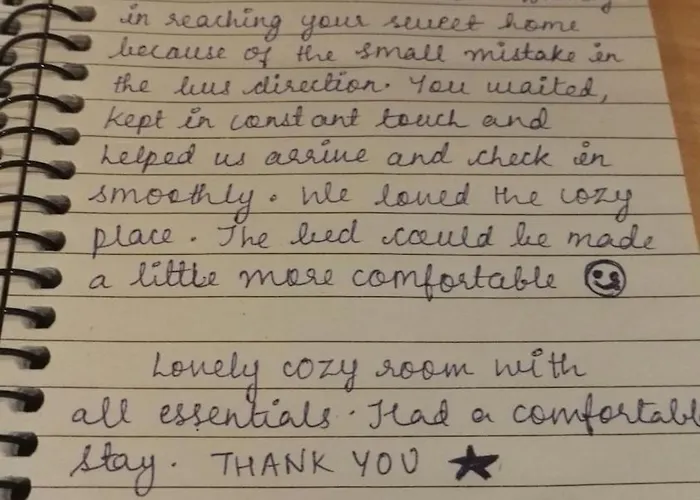 in reaching your sweet home
because of the small mistake in
the bus direction. You waited,
kept in constant touch and
helped us arrive and check in
smoothly. We loved the cozy
place. The bed could be made
a little more comfortable
Lovely cozy room with
all essentials. Had a comfortabl
stay. THANK YOU